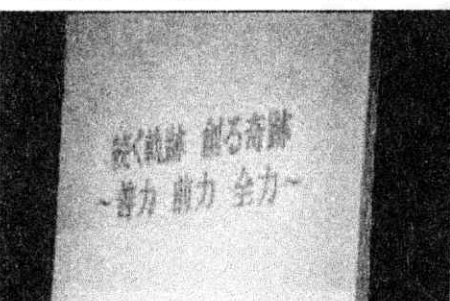 続く軌跡 創る奇跡
～善力 前力 全力～